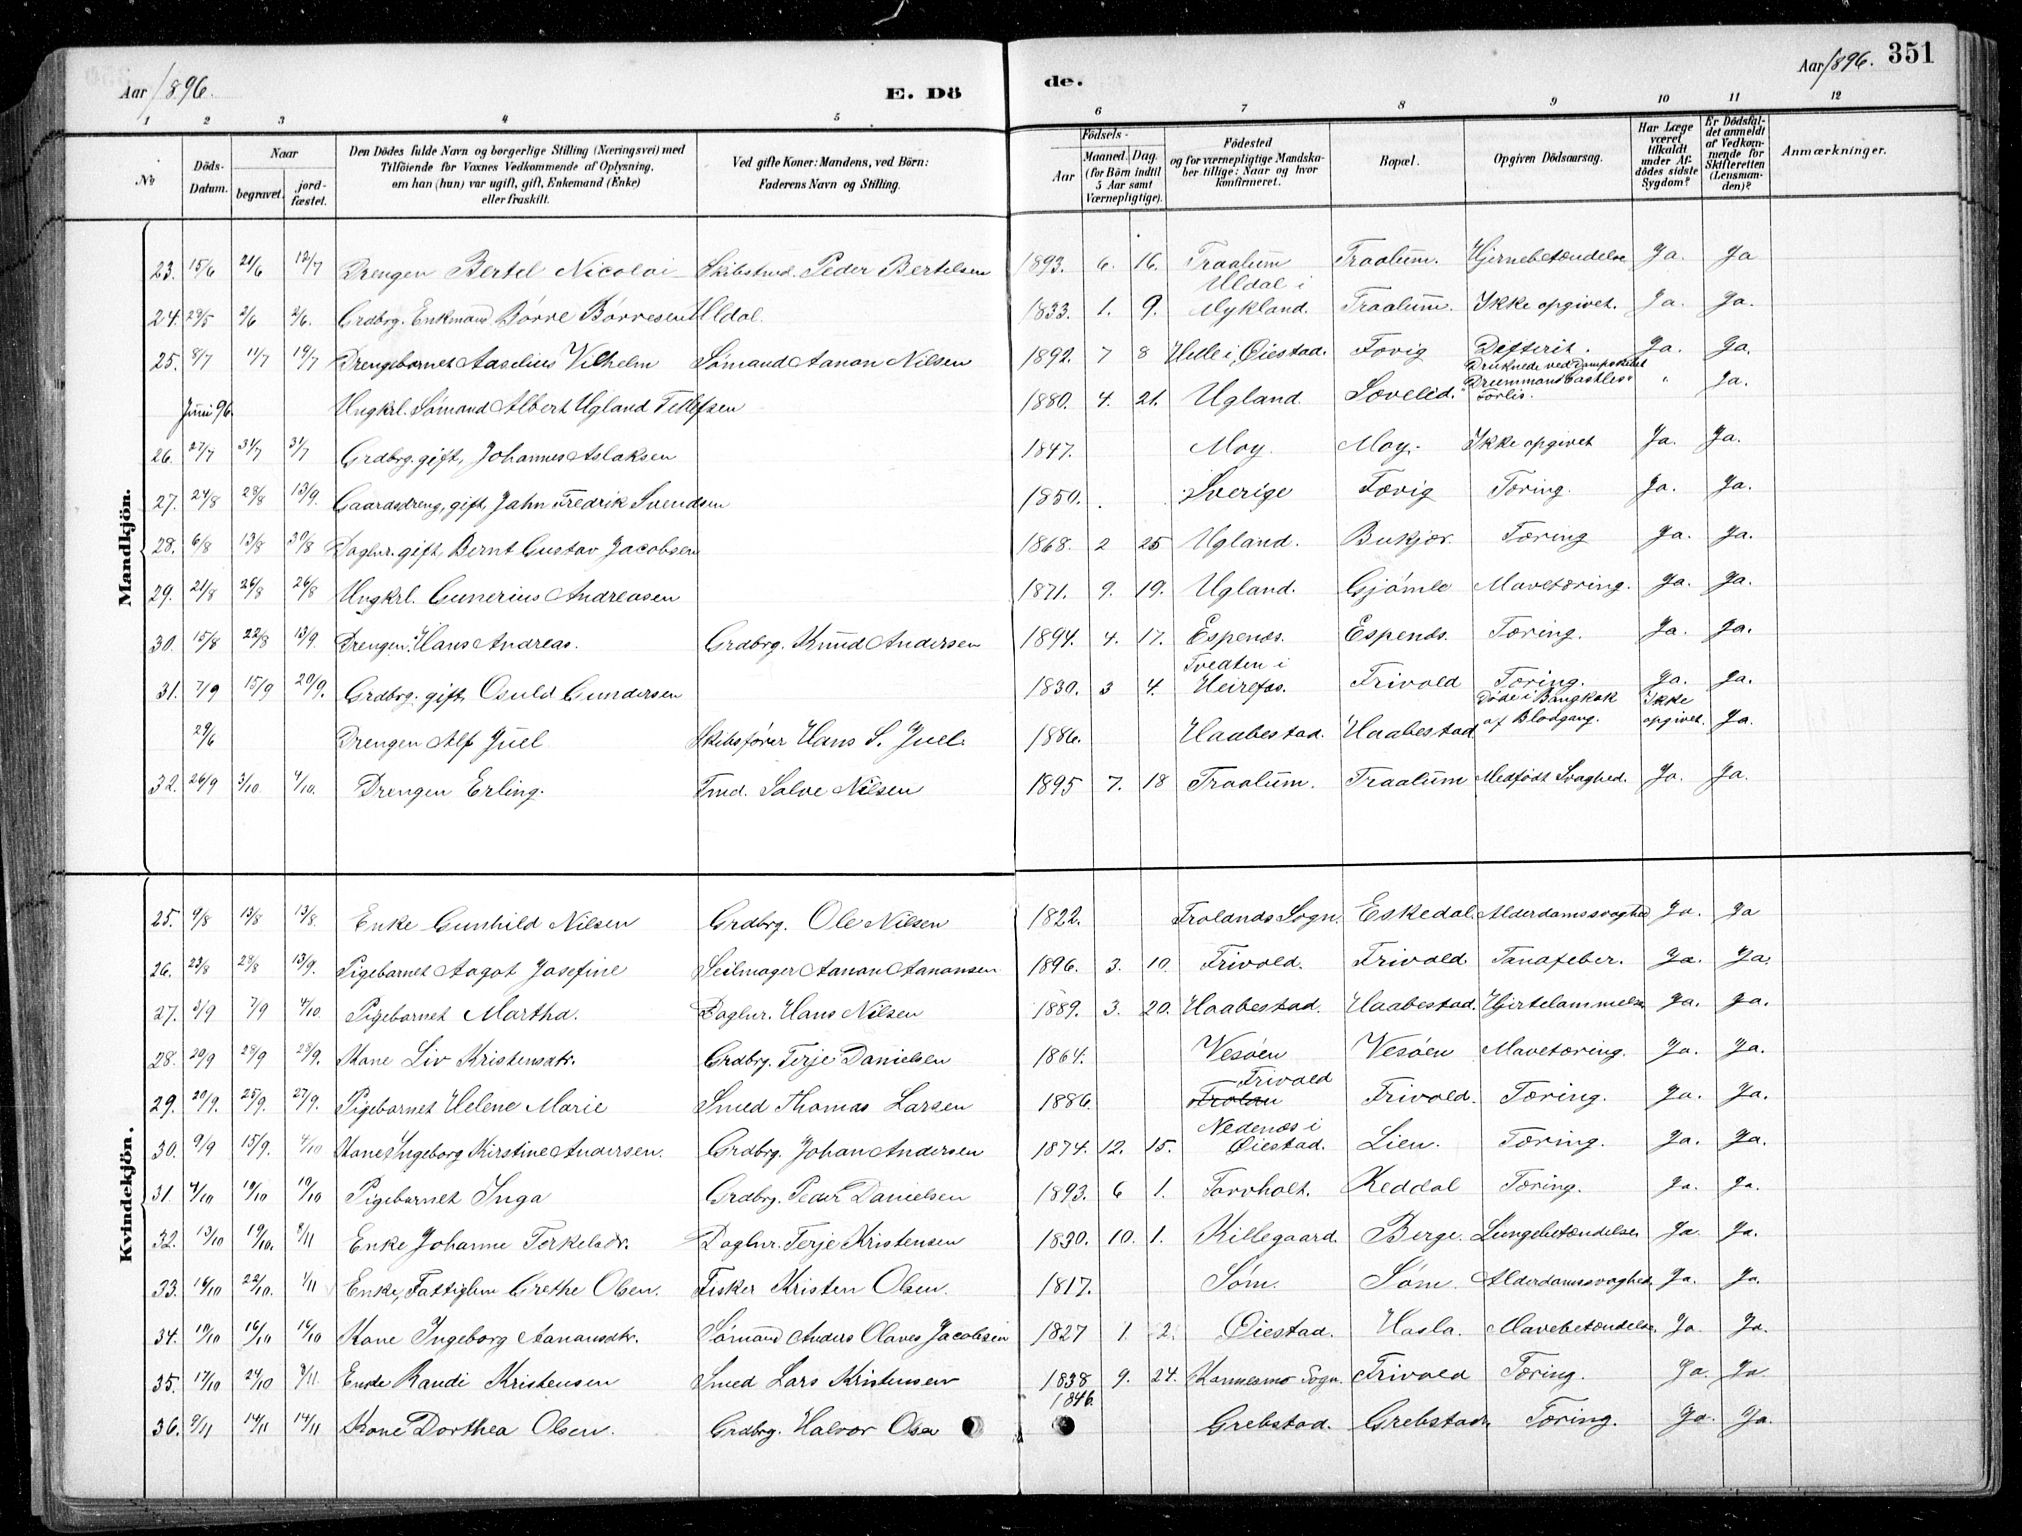 Aar 1896. E. Dö
de. Aar 1896. 351
1 2 3 4 5 6 7 8 9 10 11 12
No
Döds-Datum.
Naar begravet. jordfæstet.
Den Dödes fulde Navn og borgerlige Stilling (Næringsvei) med
Tilföiende for Voxnes Vedkommende af Oplysning,
om han (hun) var ugift, gift, Enkemand (Enke)
eller fraskilt.
Ved gifte Koner: Mandens, ved Börn:
Faderens Navn og Stilling.
Födsels-
Aar Maaned. Dag.
(for Börn indtil 5 Aar samt Værnepligtige).
Födested
og for værnepligtige Mandskaber tillige: Naar og hvor konfirmeret.
Bopæl.
Opgiven Dödsaarsag.
Har Læge været tilkaldt under Afdödes sidste Sygdom?
Er Dödsfaldet anmeldt af Vedkommende for Skifteretten (Lensmanden)?
Anmærkninger.
Mandkjön.
23. 15/6 21/6 12/7 Drengen Bertel Nicolai Skibstmd. Peder Bertelsen 1893. 6. 16. Traalum Traalum. Hjernebetændelse Ja. Ja
24. 29/5 2/6 2/6. Grdbrg. Enkmand Børre Børresen Uldal. 1833. 1. 9. Uldal i Mykland. Traalum. Ikke opgivet. Ja. Ja.
25. 8/7 11/7 19/7 Drengebarnet Aaselius Vilhelm Sømand Aanon Nilsen 1892. 7 8 Helle i Øiestad. Fævig Defterit. Ja. Ja.
Juni 96. Ungkrl. Sømand Albert Ugland Tellefsen 1880. 4. 21. Ugland. Sævelid. Druknede ved Dampskibet Drummond Castles Forlis. " Ja.
26. 27/7 31/7 31/7 Grdbrg. gift, Johannes Aslaksen 1847. Moy. Moy. Ikke opgivet Ja. Ja.
27. 24/8 29/8 13/9. Gaardsdreng, gift, Jahn Fredrik Svendsen 1850. Sverige Fævig Tæring. Ja. Ja.
28. 6/8 13/8 30/8 Daglnr. gift Bernt Gustav Jacobsen 1868. 2 25 Ugland. Bukjær. Tæring Ja. Ja.
29. 21/8 26/8 26/8 Ungkrl. Gunerius Andreasen 1871. 9. 19. Ugland. Gjømle Mavetæring. Ja. Ja.
30. 15/8 22/8 13/9. Drengen. Hans Andreas. Grdbrg. Knud Andersen 1894. 4. 17. Espenæs. Espenæs. Tæring. Ja. Ja.
31. 7/9 15/9 20/9. Grdbrg. gift, Osuld Gundersen 1830. 3 4. Tvedten i Heirefos. Frivold Tæring. Ja. Ja.
29/6 Drengen Alf Juel Skibsfører Hans S. Juel. 1886. Haabestad. Haabestad Døde i Bangkok af Blodgang. Ikke opgivet. Ja.
32. 26/9 3/10 4/10. Drengen Erling. Tmd. Salve Nilsen 1895 7. 18 Traalum. Traalum Medfødt Svaghed. Ja. Ja.
Kvindekjön.
25. 9/8 13/8 13/8. Enke Gunhild Nilsen Grdbrg. Ole Nilsen 1822. Frolands Sogn. Eskedal. Alderdomssvaghed Ja. Ja
26. 23/8 29/8 13/9. Pigebarnet Aagot Josefine Seilmager Aanon Aanonsen 1896. 3. 10. Frivold. Frivold Tanafeber. Ja. Ja.
27. 3/9 7/9 4/10 Pigebarnet Martha. Daglnr. Hans Nilsen 1889. 3. 20. Haabestad. Haabestad. Hjertelammelse Ja. Ja.
28. 20/9 29/9 29/9. Kone Liv Kristensdtr. Grdbrg. Terje Danielsen 1864. Vesøen Vesøen Mavetæring. Ja. Ja.
29. 20/9. 25/9. 27/9. Pigebarnet Helene Marie Smed Thomas Larsen 1886. Frivold Frolan Frivold. Tæring. Ja. Ja.
30. 9/9 15/9. 4/10 Kone Ingeborg Kirstine Andersen. Grdbrg. Johan Andersen 1874. 12. 15. Nedenæs i Øiestad. Lien. Tæring. Ja. Ja.
31. 4/10 10/10 10/10 Pigebarnet Inga Grdbrg. Peder Danielsen 1893. 6 1. Torvholt. Reddal Tæring. Ja. Ja.
32. 13/10 19/10. 8/11 Enke Johanne Torkelsdr. Daglnr. Terje Kristensen 1830. 10. 1. Killegaard. Berge. Lungebetændelse Ja. Ja.
33. 16/10 22/10. 1/11 Enke, Fattiglm Grethe Olsen. Fisker Kristen Olsen. 1817. Søm. Søm. Alderdomssvaghed. Ja. Ja.
34. 10/10 16/10 16/10 Kone Ingeborg Aanonsdtr. Sømand Anders Olaves Jacobsen 1827 1. 2. Øiestad. Hasla. Mavebetændelse. Ja. Ja.
35. 17/10 24/10 8/11. Enke Randi Kristensen Smed Lars Kristensen 1838 9. 24. Sogn. Frivold Tæring. Ja. Ja
36. 9/11 14/11 14/11 Kone Dorthea Olsen. Grdbrg. Halvor Olsen 1846. Grebstad. Grebstad. Tæring. Ja. Ja.